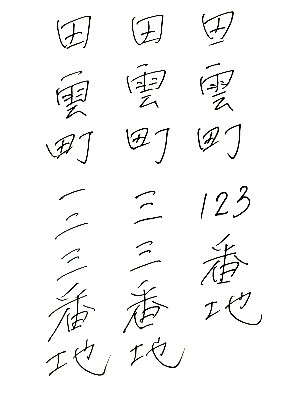 田雲町123番地
田雲町三三番地
田雲町一二三番地